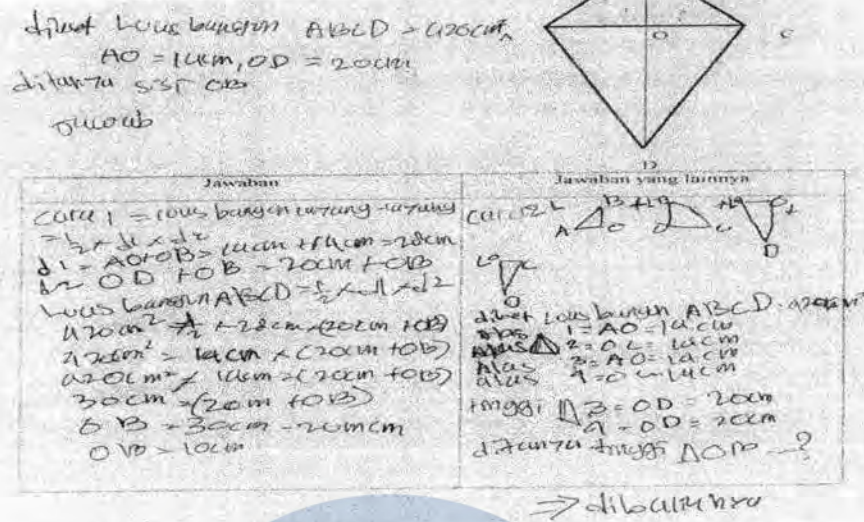 diket Luas bangun ABCD = 420cm²
AO = 14cm, OD = 20cm
ditanya sisi OB
jawab
O
C
D
Jawaban
Jawaban yang lainnya
cara 1 = luas bangun layang-layang
= 1/2 x d1 x d2
d1 = AO+OB = 14cm + 14cm = 28cm
d2 = OD + OB = 20cm + OB
Luas bangun ABCD = 1/2 x d1 x d2
420cm² = 1/2 x 28cm x (20cm + OB)
420cm² = 14cm x (20cm + OB)
420cm² / 14cm = (20cm + OB)
30cm = (20cm + OB)
OB = 30cm - 20cm
OB = 10cm
cara 2 L
A B O
D
diket Luas bangun ABCD = 420cm²
Alas 1 = AO = 14cm
Alas △ 2 = OC = 14cm
Alas 3 = AO = 14cm
alas 4 = 14cm
tinggi △ 3 = OD = 20cm
4 = OD = 20cm
ditanya tinggi △OB --?
⇒ dibaliknya